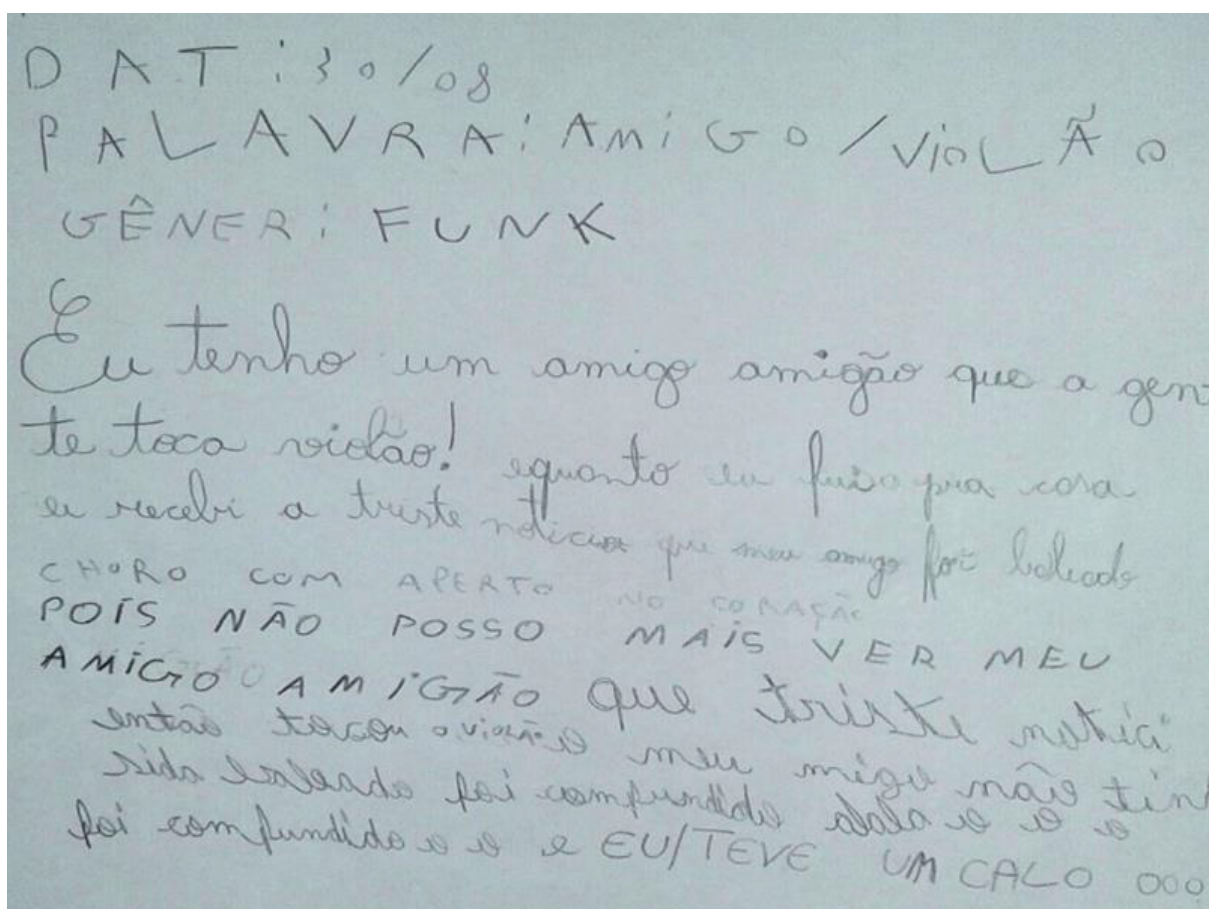 DAT:30/08
PALAVRA: AMiGO/ViOLÃO
GÊNER: FUNK
Eu tenho um amigo amigão que a gen-
te toca violão! equanto eu pra casa
eu recebi a triste noticia que meu amigo foi baleado
CHORO COM APERTO NO CORAÇÃO
POIS NÃO POSSO MAIS VER MEU
AMIGO AMIGÃO que triste notici
então tocou o violão o meu migo não tinh
sido baleado foi comfundido e o e o
foi comfundido e o e EU/TEVE UM CALO OOO